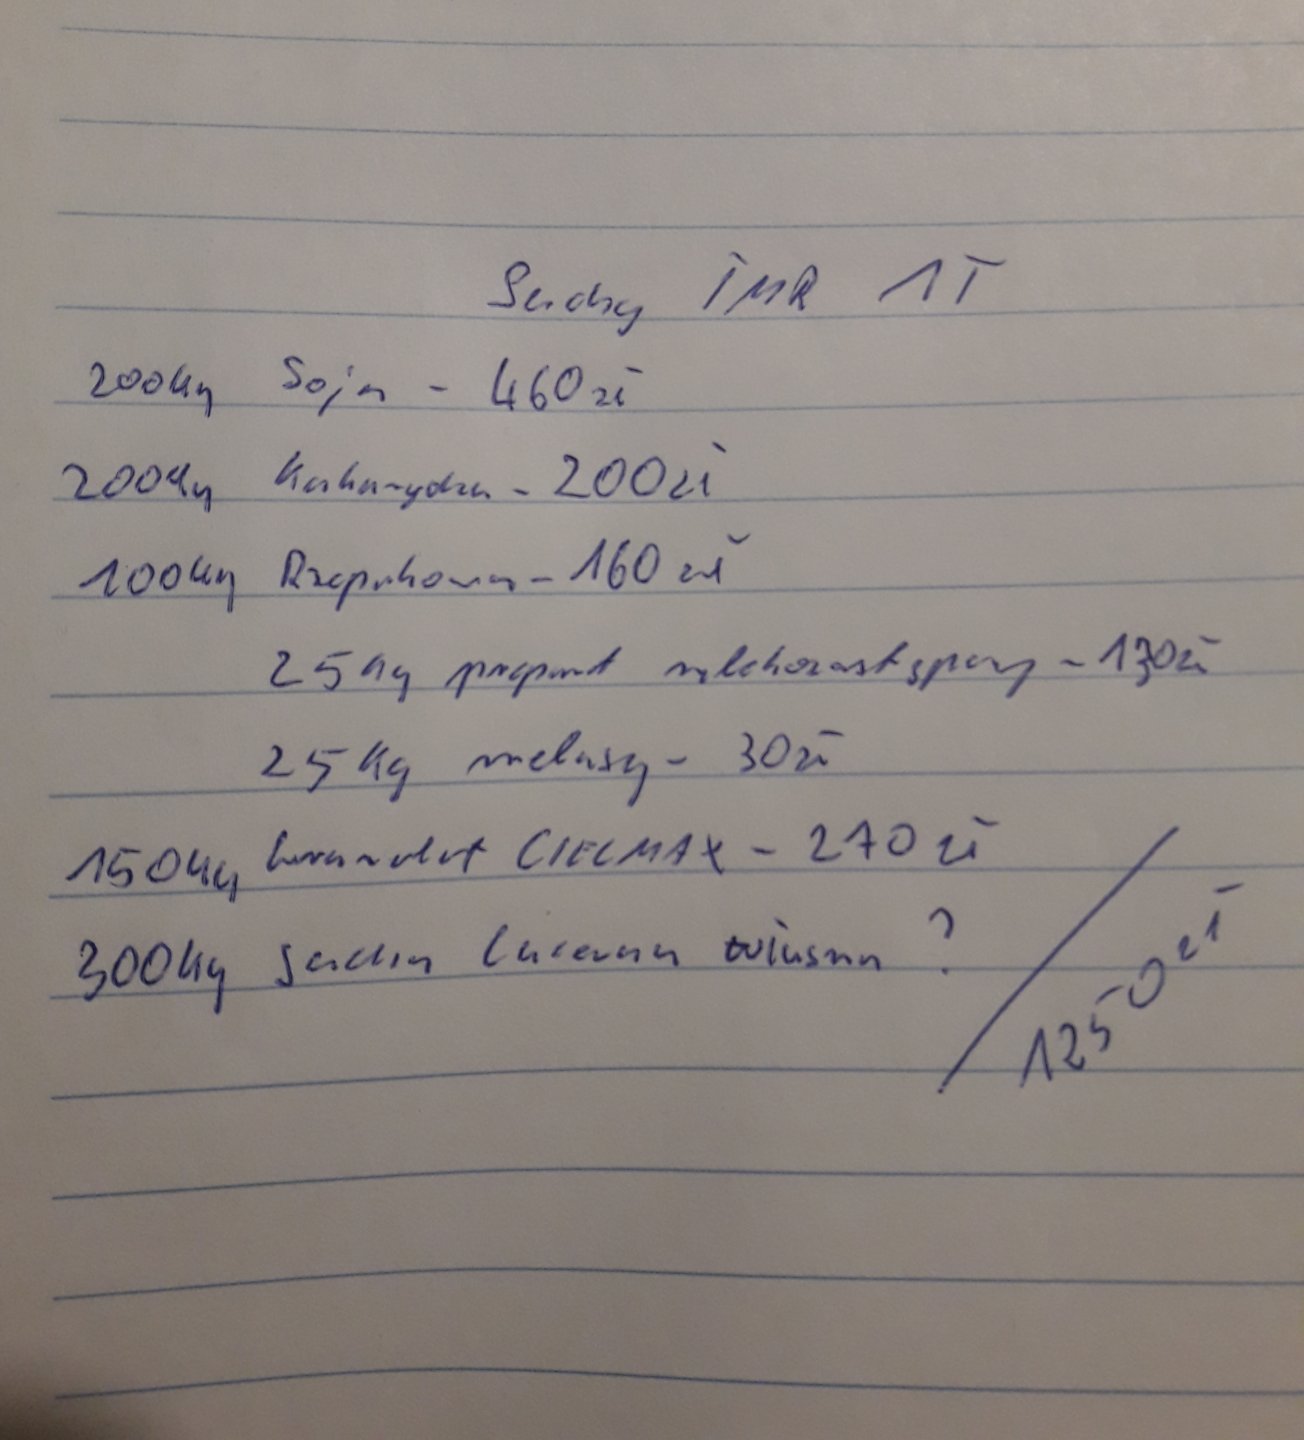 Suchy TMR 1T
200kg Soja - 460zł
200kg Kukurydza - 200zł
100kg Rzepakowa - 160 zł
25kg preparat mlekozastępczy - 130zł
25kg melasy - 30zł
150kg Granulat CIELMAX - 270 zł
300kg sucha lucerna własna ?
1250 zł